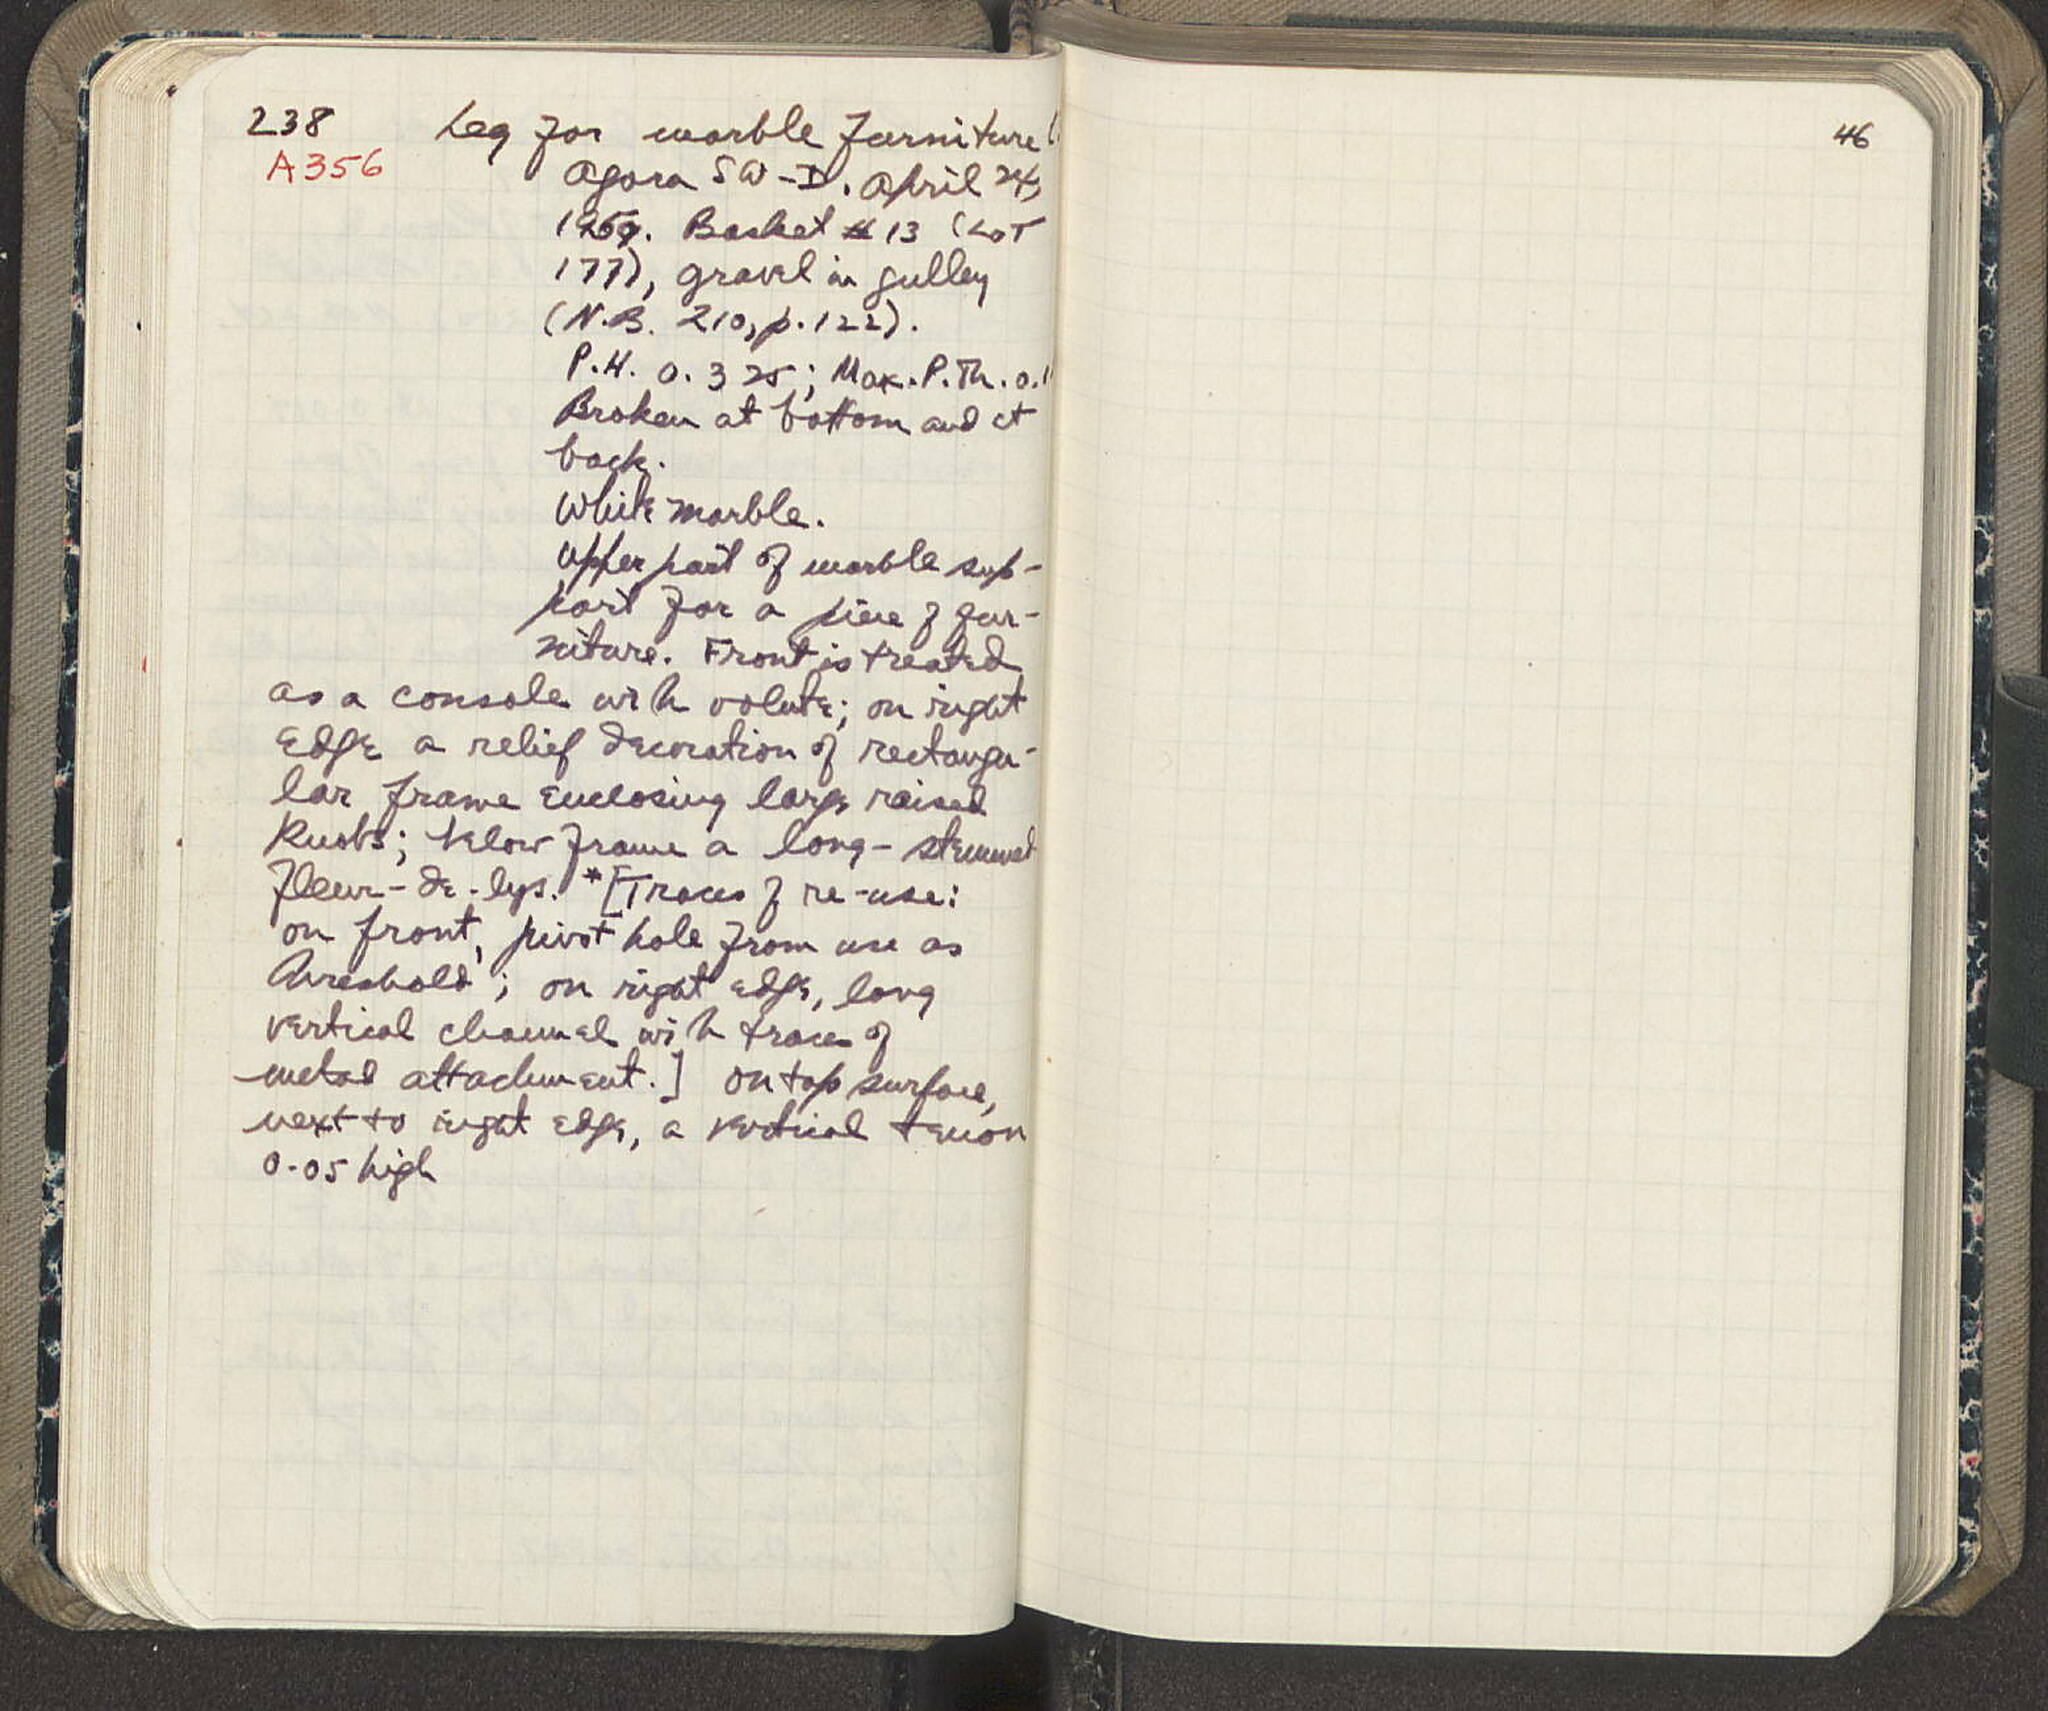 238 Leg for marble furniture (
A356
Agora SW-D. April 24,
1959. Basket #13 (Lot
177), gravel in gulley
(N.B. 210, p. 122).
P.H. 0.325; Max. P.Th. 0.1
Broken at bottom and at
back.
White marble.
Upper part of marble sup-
port for a piece of fur-
niture. Front is treated
as a console with volute; on right
edge a relief decoration of rectangu-
lar frame enclosing large raised
knobs; below frame a long-stemmed
fleur-de-lys. *[Traces of re-use:
on front, pivot hole from use as
threshold; on right edge, long
vertical channel with traces of
metal attachment.] On top surface,
next to right edge, a vertical tenon
0.05 high
46